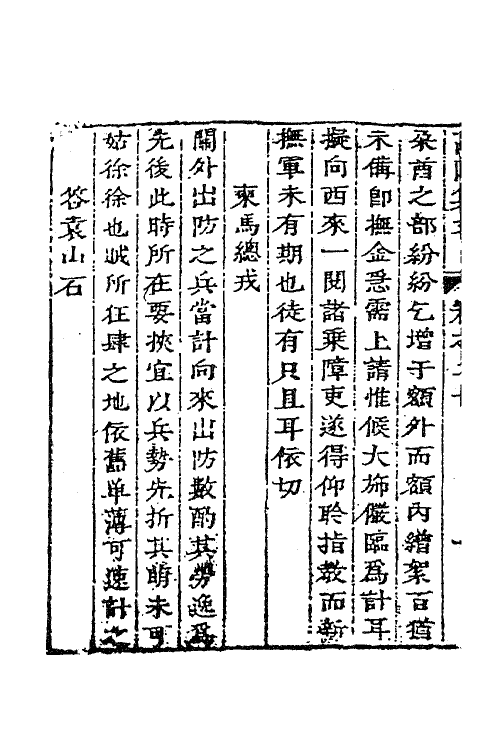 朶酋之部紛紛乞增于額外而額內繒絮百猶
未備即撫金急需上請惟候大斾儼臨爲計耳
擬向西來一閱諸乗障吏遂得仰聆指教而新
撫軍未有期也徒有只且耳依切
柬馬總戎
關外出防之兵當計向來出防數酌其勞逸爲
先後此時所在要挾宜以兵勢先折其萌未可
姑徐徐也賊所狂肆之地依舊單薄可速計之
答袁山石